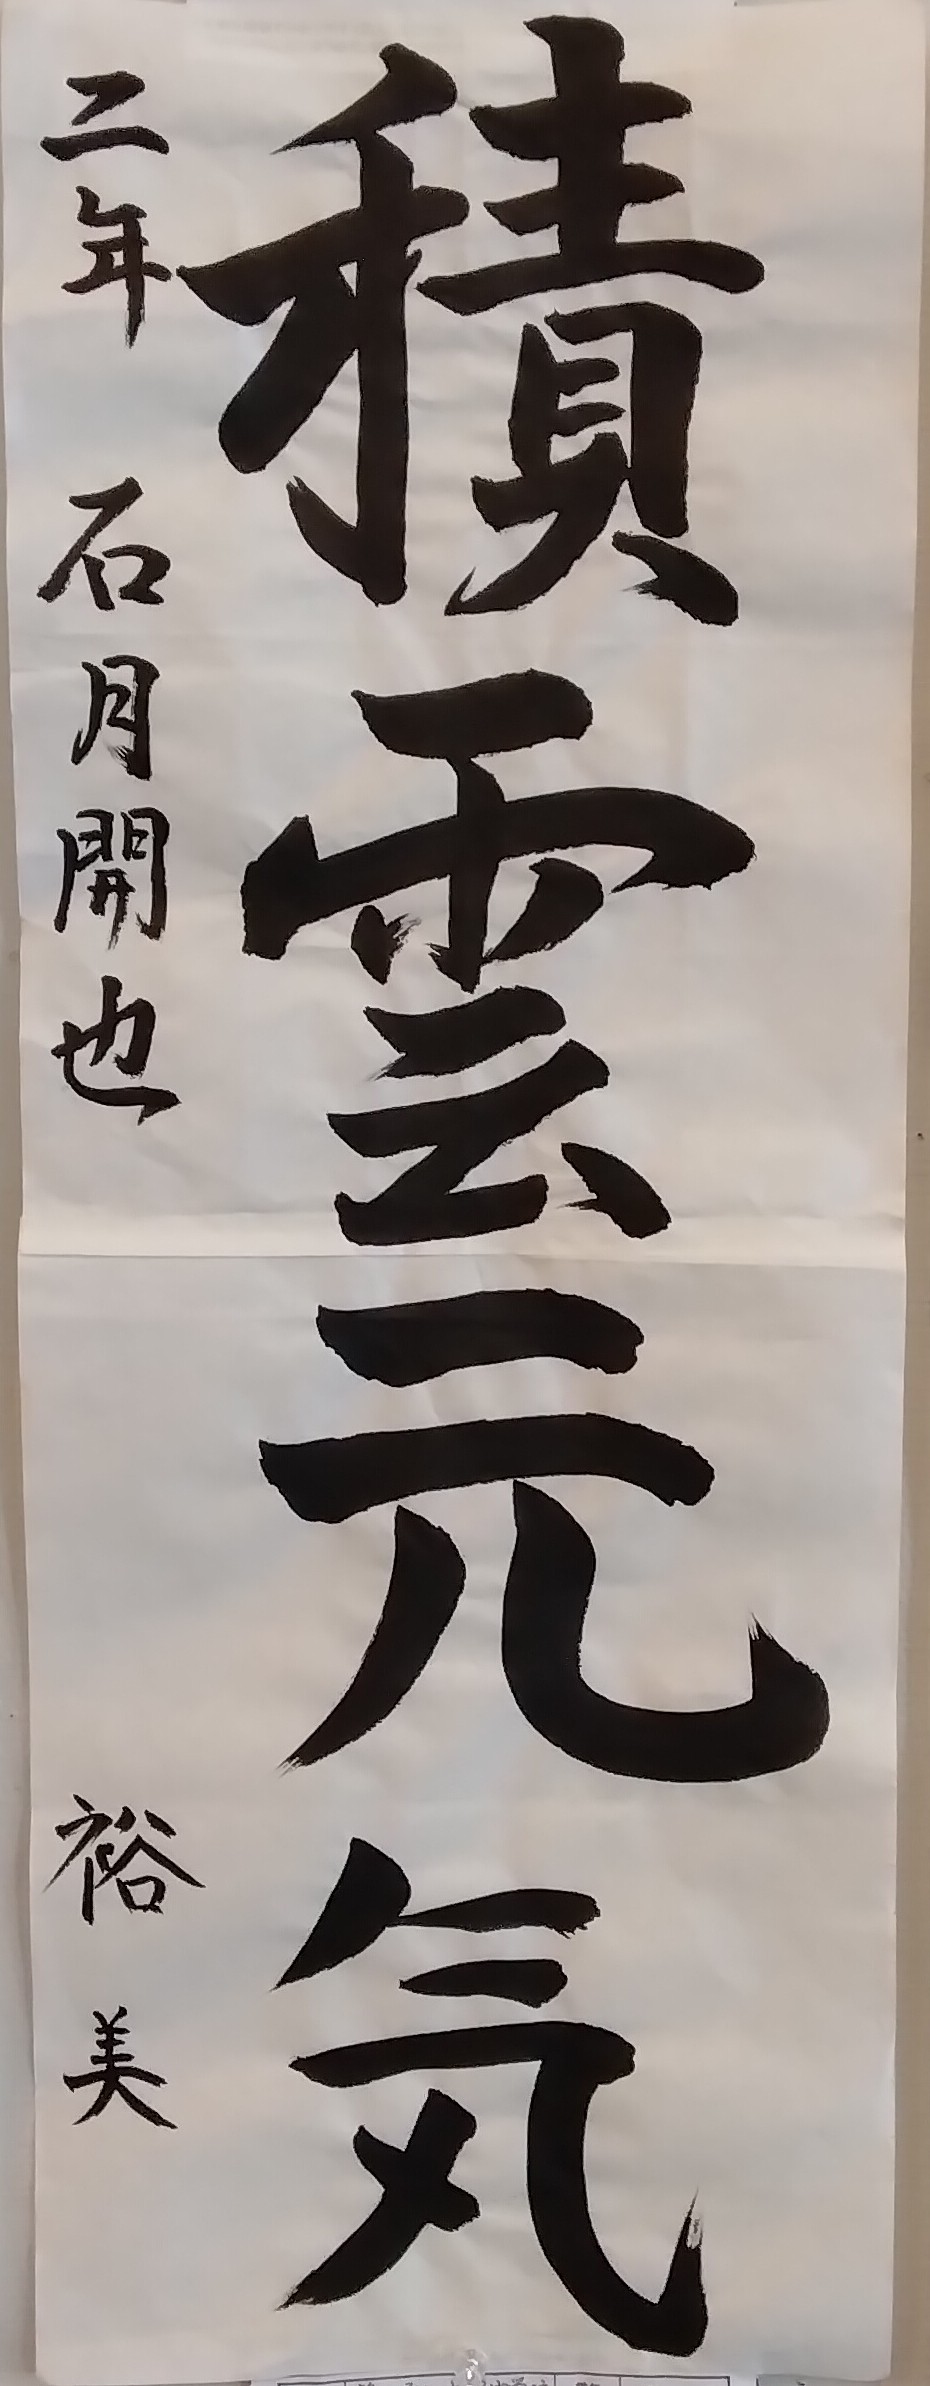 積雲元気
二年 石月開也 裕美